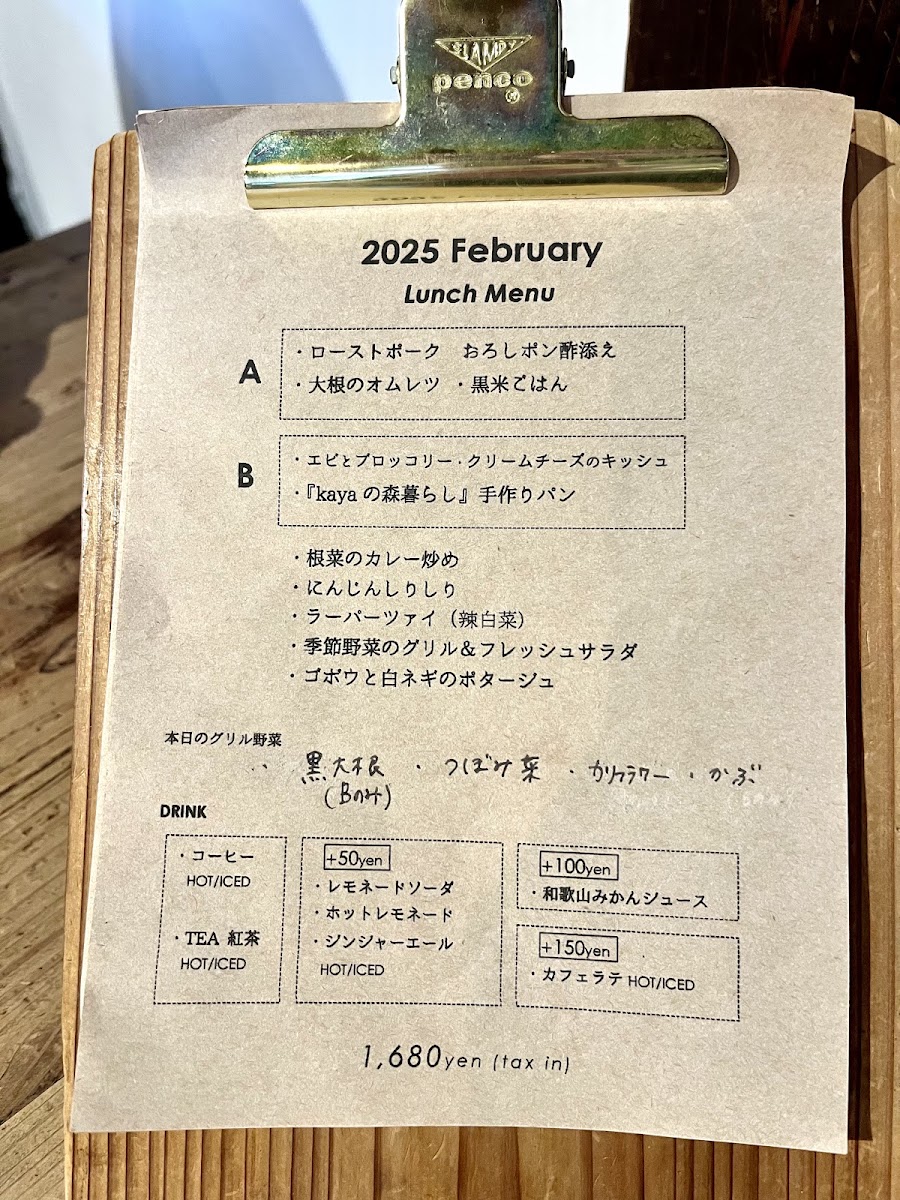 CLAMPY
penco
®
2025 February
Lunch Menu
A
・ローストポーク　おろしポン酢添え
・大根のオムレツ ・黒米ごはん
B
・エビとブロッコリー・クリームチーズのキッシュ
・『kayaの森暮らし』手作りパン
・根菜のカレー炒め
・にんじんしりしり
・ラーパーツァイ（辣白菜）
・季節野菜のグリル＆フレッシュサラダ
・ゴボウと白ネギのポタージュ
本日のグリル野菜
黒大根 ・ つぼみ菜 ・ カリフラワー ・ かぶ
(Bのみ)
DRINK
・コーヒー
HOT/ICED
・TEA 紅茶
HOT/ICED
+50yen
・レモネードソーダ
・ホットレモネード
・ジンジャーエール
HOT/ICED
+100yen
・和歌山みかんジュース
+150yen
・カフェラテ HOT/ICED
1,680yen (tax in)